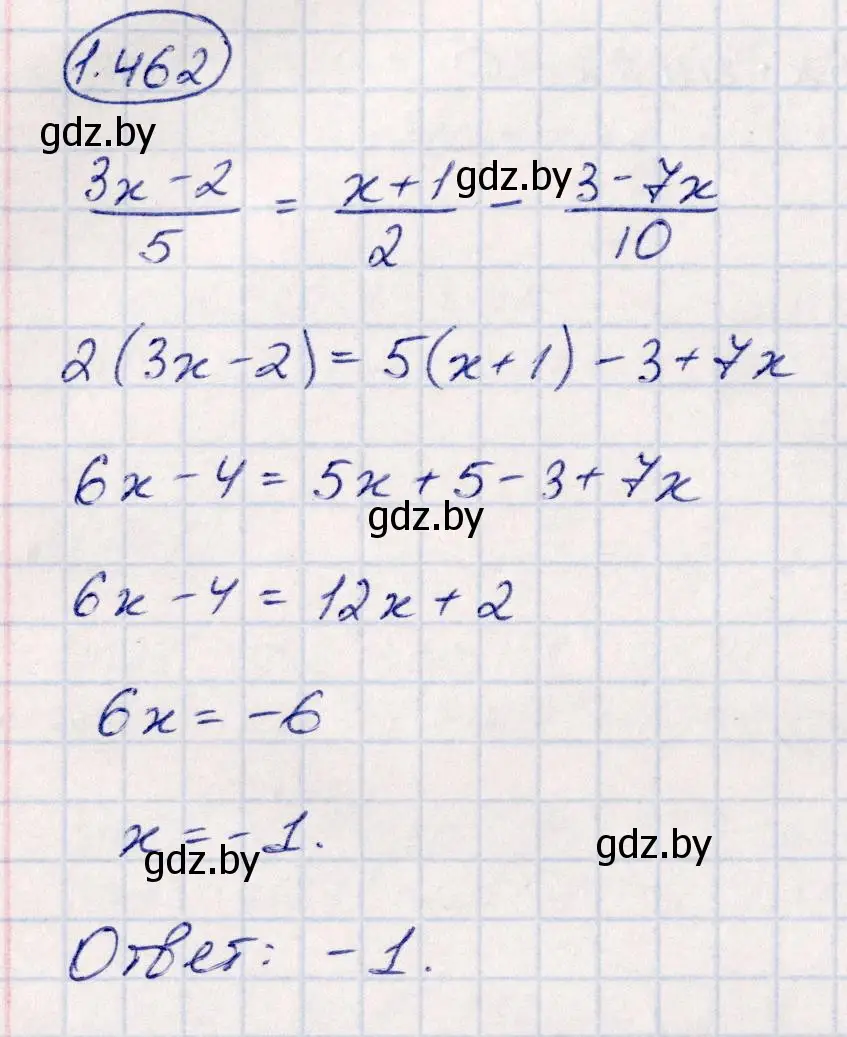 1.462
gdz.by
(3x - 2)/5 = (x + 1)/2 - (3 - 7x)/10
gdz.by
2(3x - 2) = 5(x + 1) - 3 + 7x
6x - 4 = 5x + 5 - 3 + 7x
gdz.by
6x - 4 = 12x + 2
6x = -6
x = -1.
gdz.by
gdz.by
Ответ: -1.